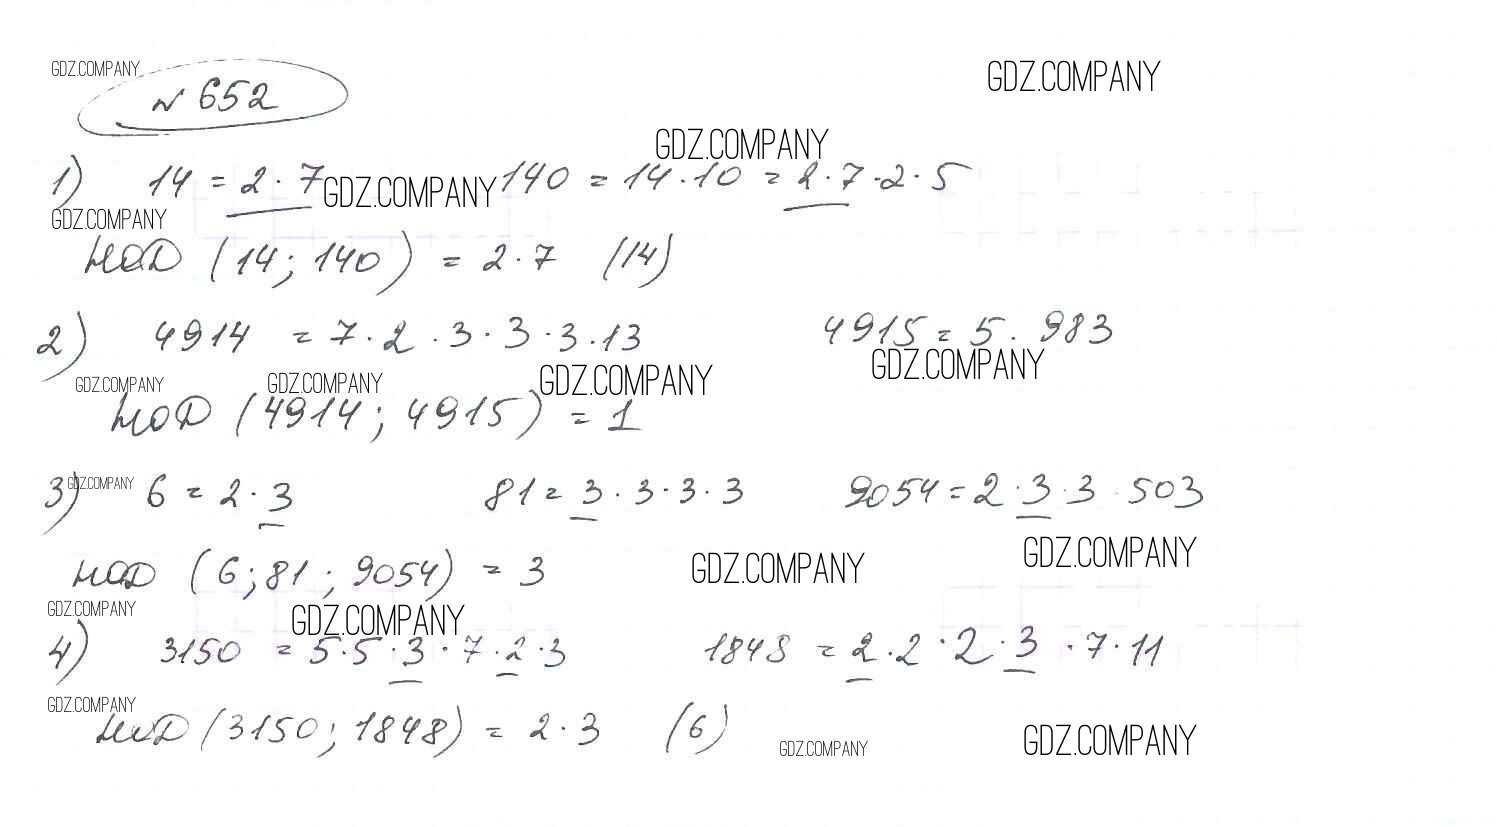 GDZ.COMPANY
№ 652
GDZ.COMPANY
GDZ.COMPANY
1) 14 = 2 · 7 GDZ.COMPANY 140 = 14 · 10 = 2 · 7 · 2 · 5
GDZ.COMPANY
НОД (14; 140) = 2 · 7 (14)
2) 4914 = 7 · 2 · 3 · 3 · 3 · 13 4915 = 5 · 983
GDZ.COMPANY GDZ.COMPANY GDZ.COMPANY GDZ.COMPANY
НОД (4914; 4915) = 1
3) GDZ.COMPANY 6 = 2 · 3 81 = 3 · 3 · 3 · 3 9054 = 2 · 3 · 3 · 503
НОД (6; 81; 9054) = 3 GDZ.COMPANY GDZ.COMPANY
GDZ.COMPANY GDZ.COMPANY
4) 3150 = 5 · 5 · 3 · 7 · 2 · 3 1848 = 2 · 2 · 2 · 3 · 7 · 11
GDZ.COMPANY
НОД (3150; 1848) = 2 · 3 (6)
GDZ.COMPANY GDZ.COMPANY